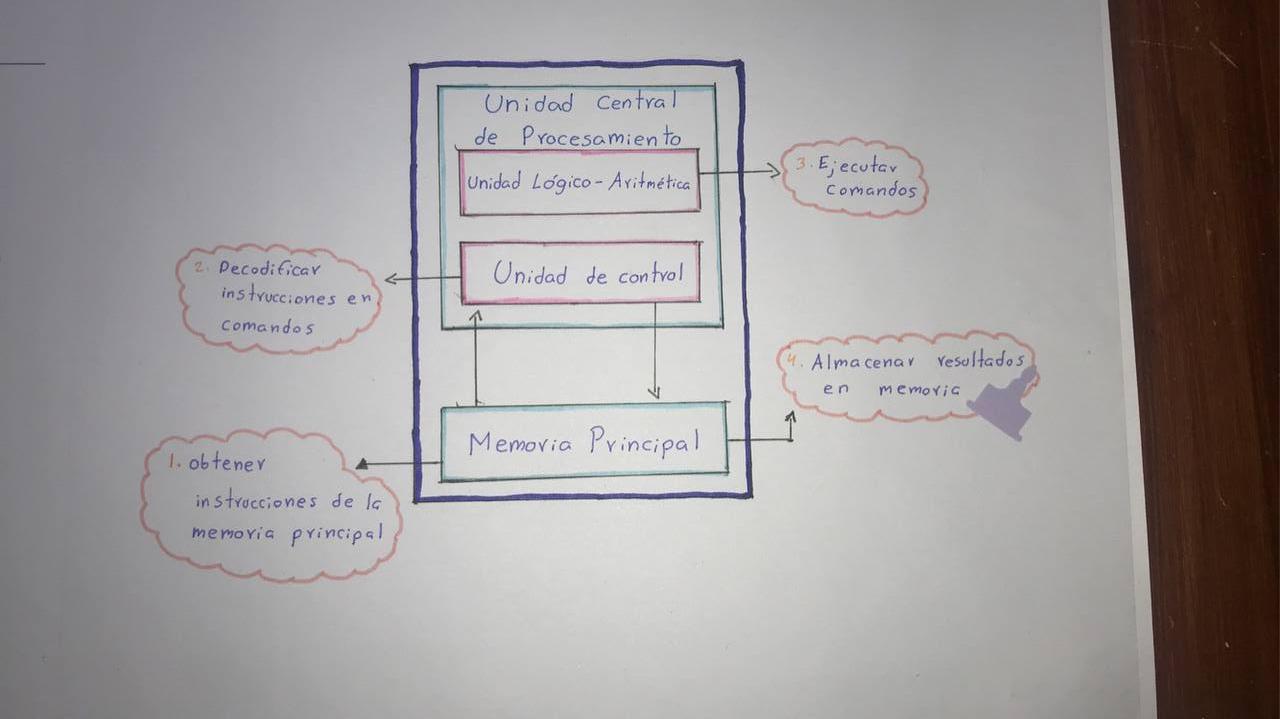 Unidad Central
de Procesamiento
Unidad Lógico-Aritmética
3. Ejecutar
comandos
Unidad de control
2. Decodificar
instrucciones en
comandos
4. Almacenar resultados
en memoria
Memoria Principal
1. obtener
instrucciones de la
memoria principal